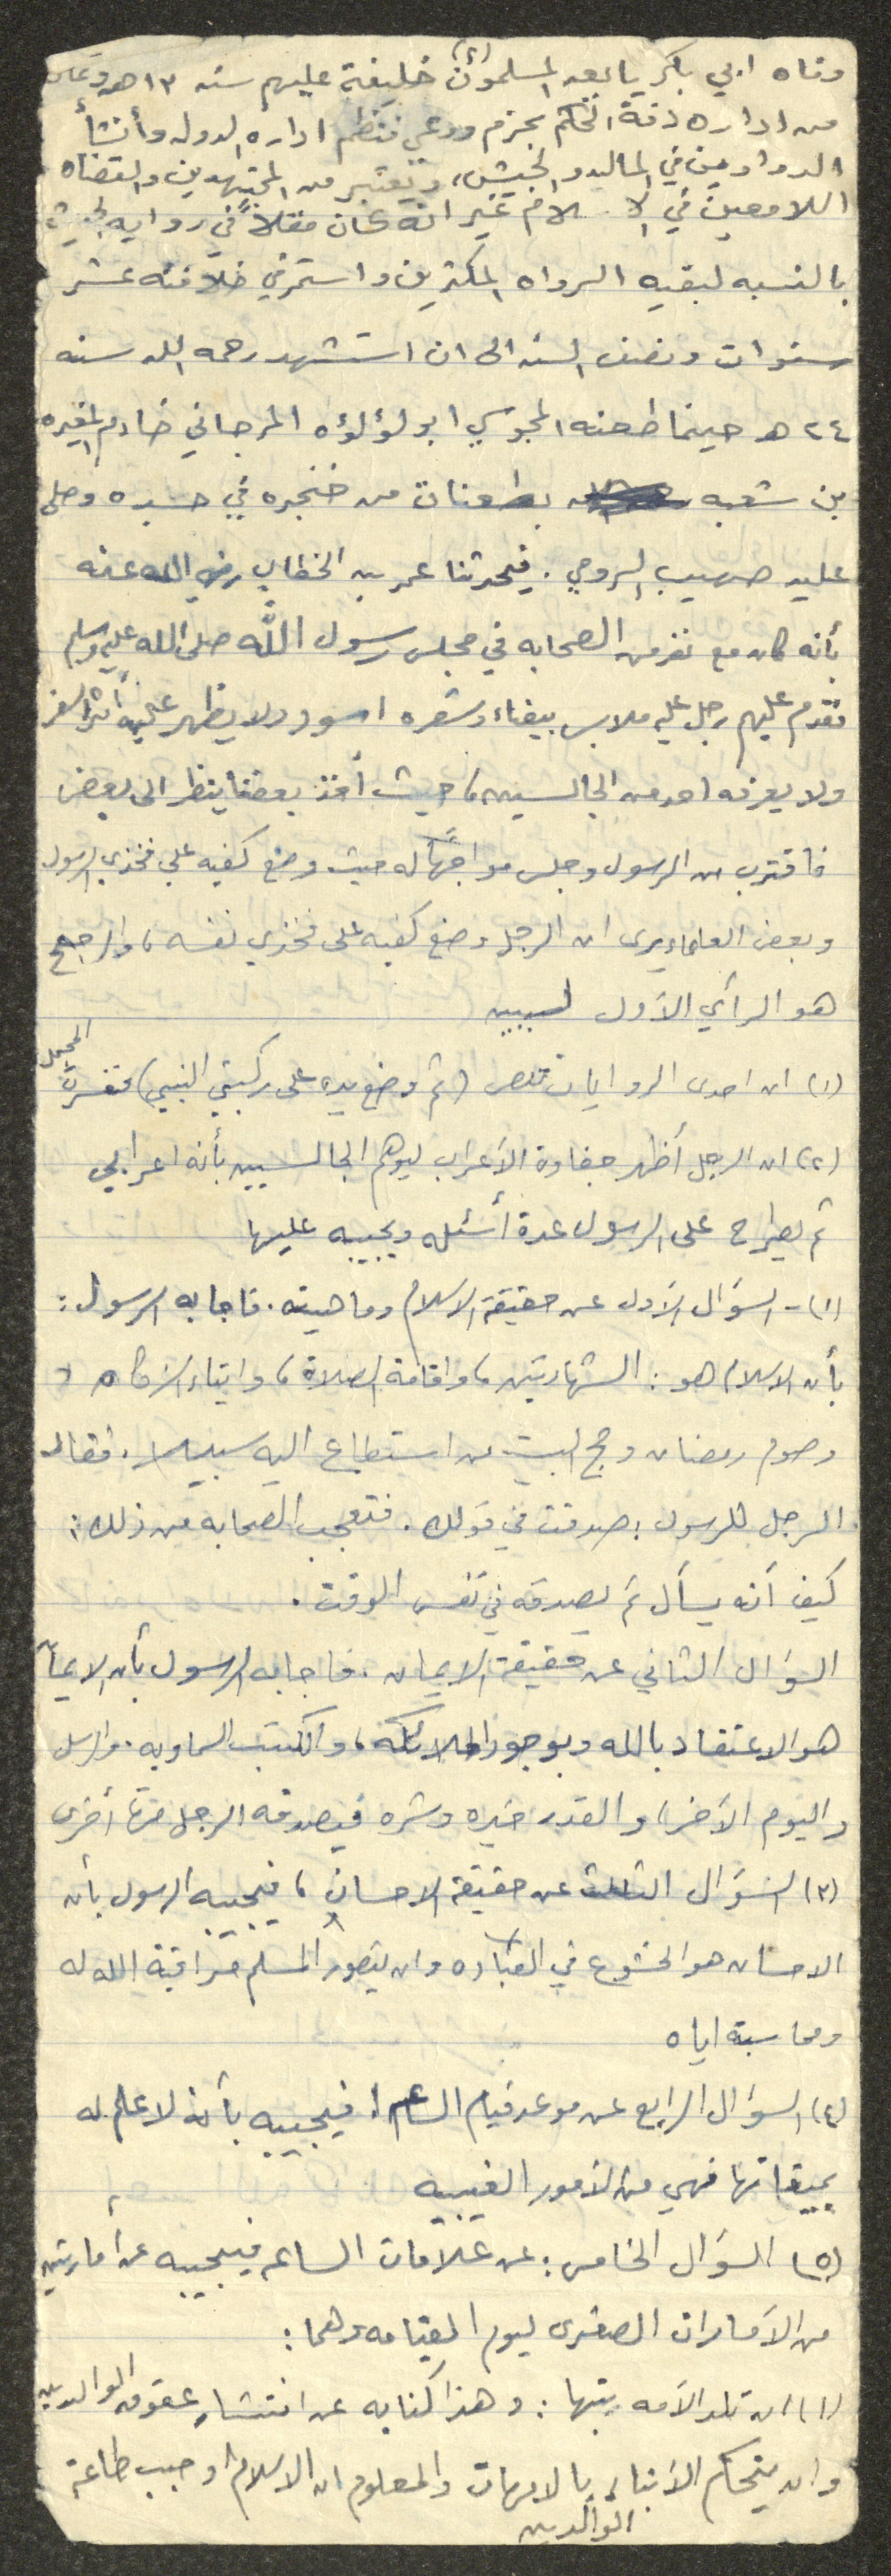 (٢)
وفاه ابي بكر بايعه المسلمون خليفة عليهم سنه ١٣ هـ وتمكن
من اداره دفة الحكم بحزم ووعي فنظم اداره الدوله وأنشأ
الدواوين في الماليه والجيش، ويعتبر من المجتهدين والقضاه
اللامعين في الاسلام غير انه كان مقلاً في روايه الحديث
بالنسبه لبقيه الرواه المكثرين واستمر في خلافته عشر
سنوات ونصف السنه الى ان استشهد رحمه الله سنه
٢٤ هـ حينما طعنه المجوسي ابو لؤلؤه المرجاني خادم المغيره
بن شعبه بطعنات من خنجره في جسده وصلى
عليه صهيب الرومي. فيحدثنا عمر بن الخطاب رضي الله عنه
بأنه كان مع نفر من الصحابه في مجلس رسول الله صلى الله عليه وسلم
فقدم عليهم رجل عليه ملابس بيضاء وشعره اسود ولا يظهر عليه أثر السفر
ولا يعرفه احد من الجالسين، حيث أخذ بعضنا ينظر الى بعض
فاقترب من الرسول وجلس مواجهاً له حيث وضع كفيه على فخذي الرسول
وبعض العلماء يرى ان الرجل وضع كفيه على فخذي نفسه، والراجح
هو الرأي الأول لسببين
(١) ان احدى الروايات تنص (ثم وضع يده على ركبتي النبي) ففسرت المجمل
(٢) ان الرجل أظهر جفاوة الأعراب ليوهم الجالسيين بأنه اعرابي
ثم يطرح على الرسول عدة أسئله ويجيبه عليها
(١) - السؤال الأول عن حقيقة الاسلام وماهيته. فاجابه الرسول:
بأن الاسلام هو: الشهادتين، واقامة الصلاة، وايتاء الزكاه و
وصوم رمضان وحج البيت من استطاع اليه سبيلا. فقال
الرجل للرسول: صدقت في قولك. فتعجب الصحابه من ذلك:
كيف أنه يسأل ثم يصدقه في نفس الوقت.
السؤال الثاني عن حقيقة الايمان. فاجابه الرسول بأن الايمان
هو الاعتقاد بالله وبوجود الملائكه، والكتب السماويه. والرسل
واليوم الآخر، والقدر خيره وشره فيصدقه الرجل مرة أخرى
(٣) السؤال الثالث عن حقيقة الاحسان، فيجيبه الرسول بأن
الاحسان هو الخشوع في العباده وان يتصور المسلم مراقبة الله له
ومحاسبته اياه
(٤) السؤال الرابع عن موعد قيام الساعه. فيجيبه بأنه لا علم له
بميقاتها فهي من الأمور الغيبيه
(٥) السؤال الخامس: عن علامات الساعه فيجيبه عن أمارتين
من الأمارات الصغرى ليوم القيامه وهما:
(١) ان تلد الأمه ربتها: وهذا كنايه عن انتشار عقوق الوالدين
وان يتحكم الأبناء بالامهات والمعلوم ان الاسلام اوجب طاعة
الوالدين